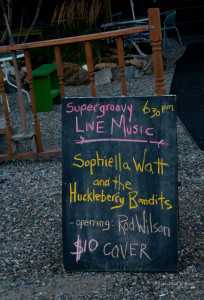 Supergroovy 6:30 pm
LIVE MUSIC
Sophiella Watt
and the
Huckleberry Bandits
- opening: Rod Wilson
$10 COVER